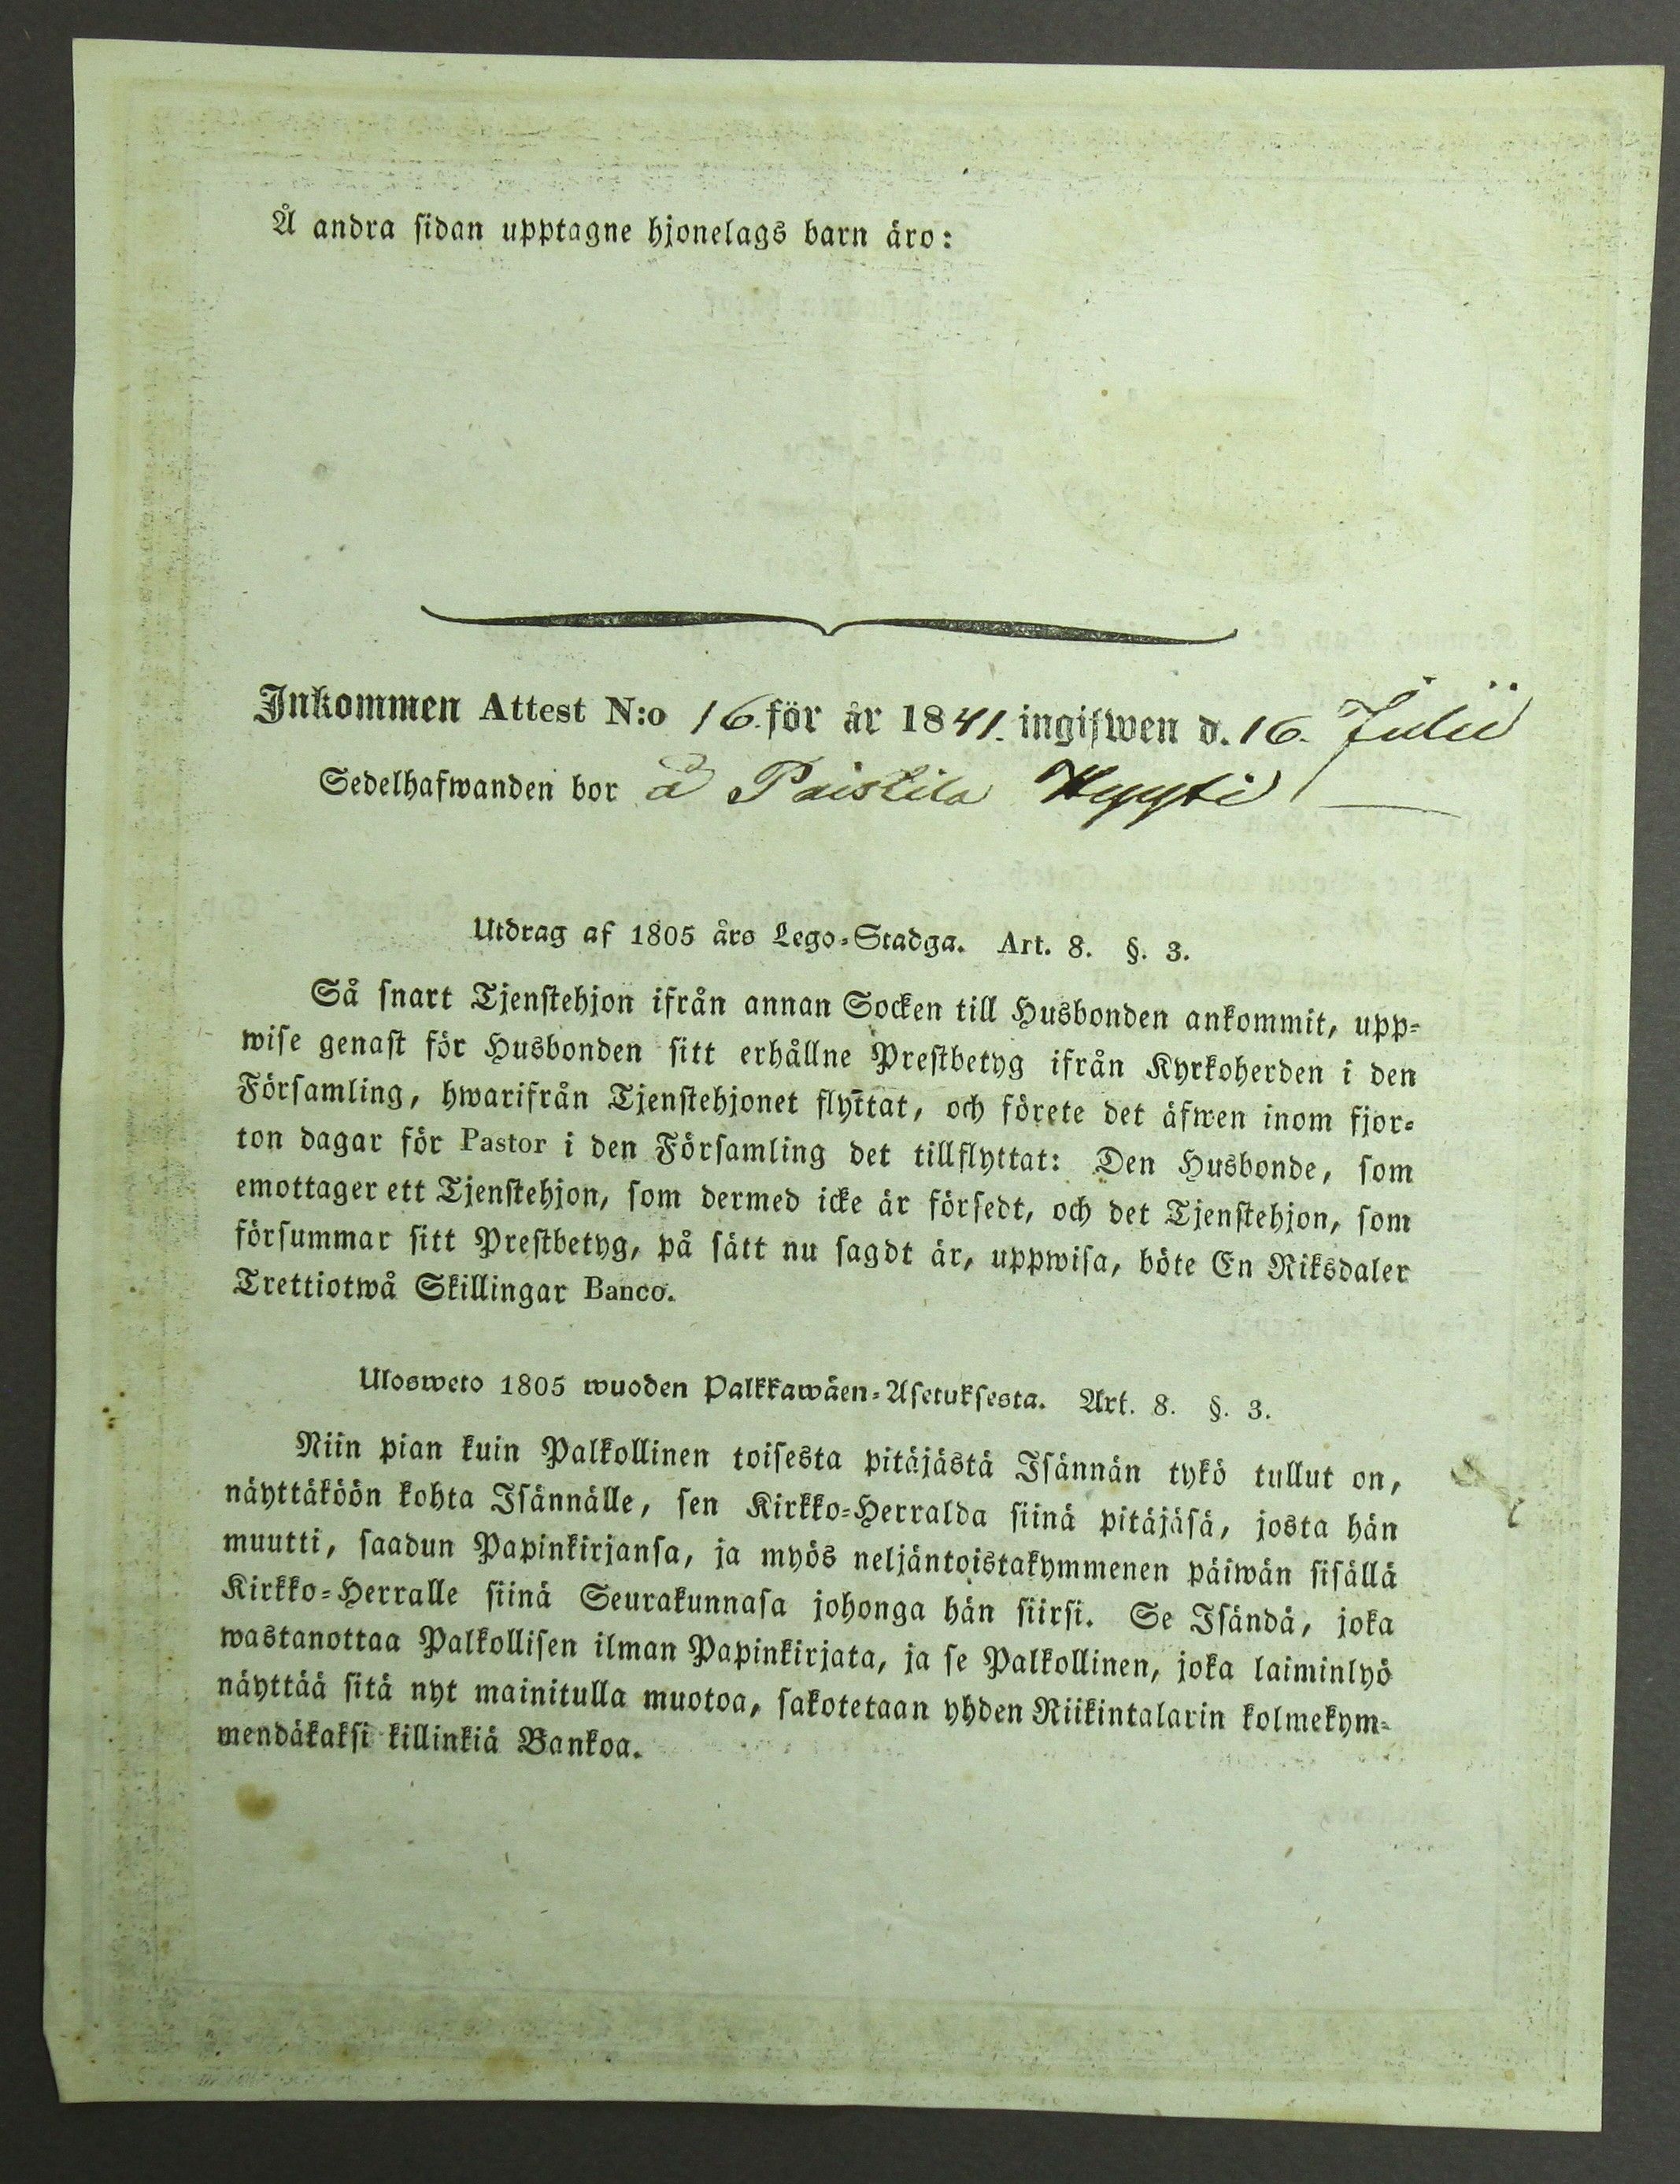 Å andra sidan upptagne hjonelags barn äro:
Inkommen Attest N:o 16. för år 1841. ingifwen d. 16. Julii
Sedelhafwanden bor å Paistila Hyyti
Utdrag af 1805 års Lego-Stadga. Art. 8. §. 3.
Så snart Tjenstehjon ifrån annan Socken till Husbonden ankommit, upp-
wise genast för Husbonden sitt erhållne Prestbetyg ifrån Kyrkoherden i den
Församling, hwarifrån Tjenstehjonet flyttat, och förete det äfwen inom fjor-
ton dagar för Pastor i den Församling det tillflyttat: Den Husbonde, som
emottager ett Tjenstehjon, som dermed icke är försedt, och det Tjenstehjon, som
försummar sitt Prestbetyg, på sätt nu sagdt är, uppwisa, böte En Riksdaler
Trettiotwå Skillingar Banco.
Ulosweto 1805 wuoden Palkkawäen-Asetuksesta. Art. 8. §. 3.
Niin pian kuin Palkollinen toisesta pitäjästä Isännän tykö tullut on,
näyttäköön kohta Isännälle, sen Kirkko-Herralda siinä pitäjäsä, josta hän
muutti, saadun Papinkirjansa, ja myös neljäntoistakymmenen päiwän sisällä
Kirkko-Herralle siinä Seurakunnasa johonga hän siirsi. Se Isändä, joka
wastanottaa Palkollisen ilman Papinkirjata, ja se Palkollinen, joka laiminlyö
näyttää sitä nyt mainitulla muotoa, sakotetaan yhden Riikintalarin kolmekym-
mendäkaksi killinkiä Bankoa.